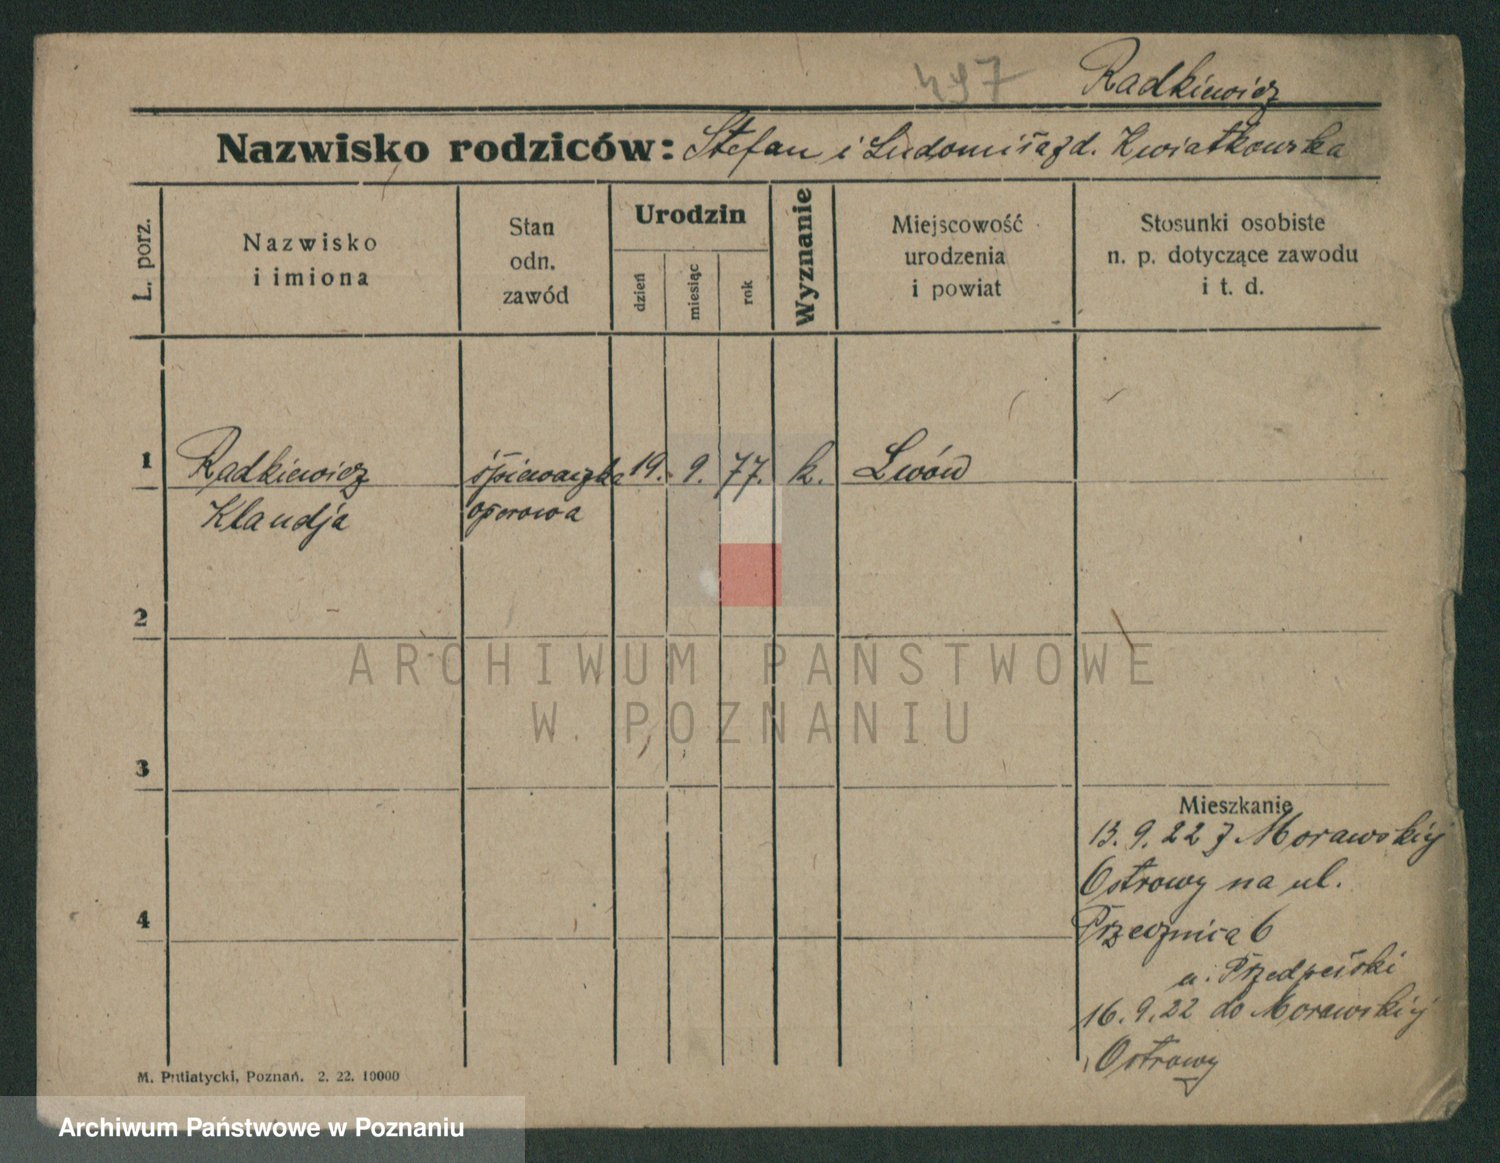 497 Radkiewicz
Nazwisko rodziców: Stefan i Ludomiła z d. Kwiatkowska
L. porz.
Nazwisko
i imiona
Stan
odn.
zawód
Urodzin
dzień
miesiąc
rok
Wyznanie
Miejscowość
urodzenia
i powiat
Stosunki osobiste
n. p. dotyczące zawodu
i t. d.
1 Radkiewicz śpiewaczka 19. 9. 77. k. Lwów
Klaudja operowa
2
ARCHIWUM PAŃSTWOWE
W POZNANIU
3
Mieszkanie
13. 9. 22 z Morawskiej
Ostrowy na ul.
4 Przecznica 6
u. 
16. 9. 22 do Morawskiej
Ostrowy
M. Putiatycki, Poznań. 2. 22. 10000
Archiwum Państwowe w Poznaniu